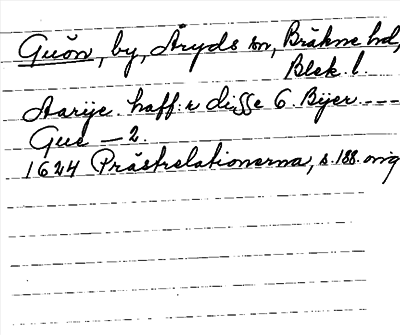 Guön, by, Åryds sn, Bräkne hd,
Blek. l.
Aarije haffr disse 6. Bÿer ---
Gue — 2.
1624 Prästrelationerna, s. 188. orig